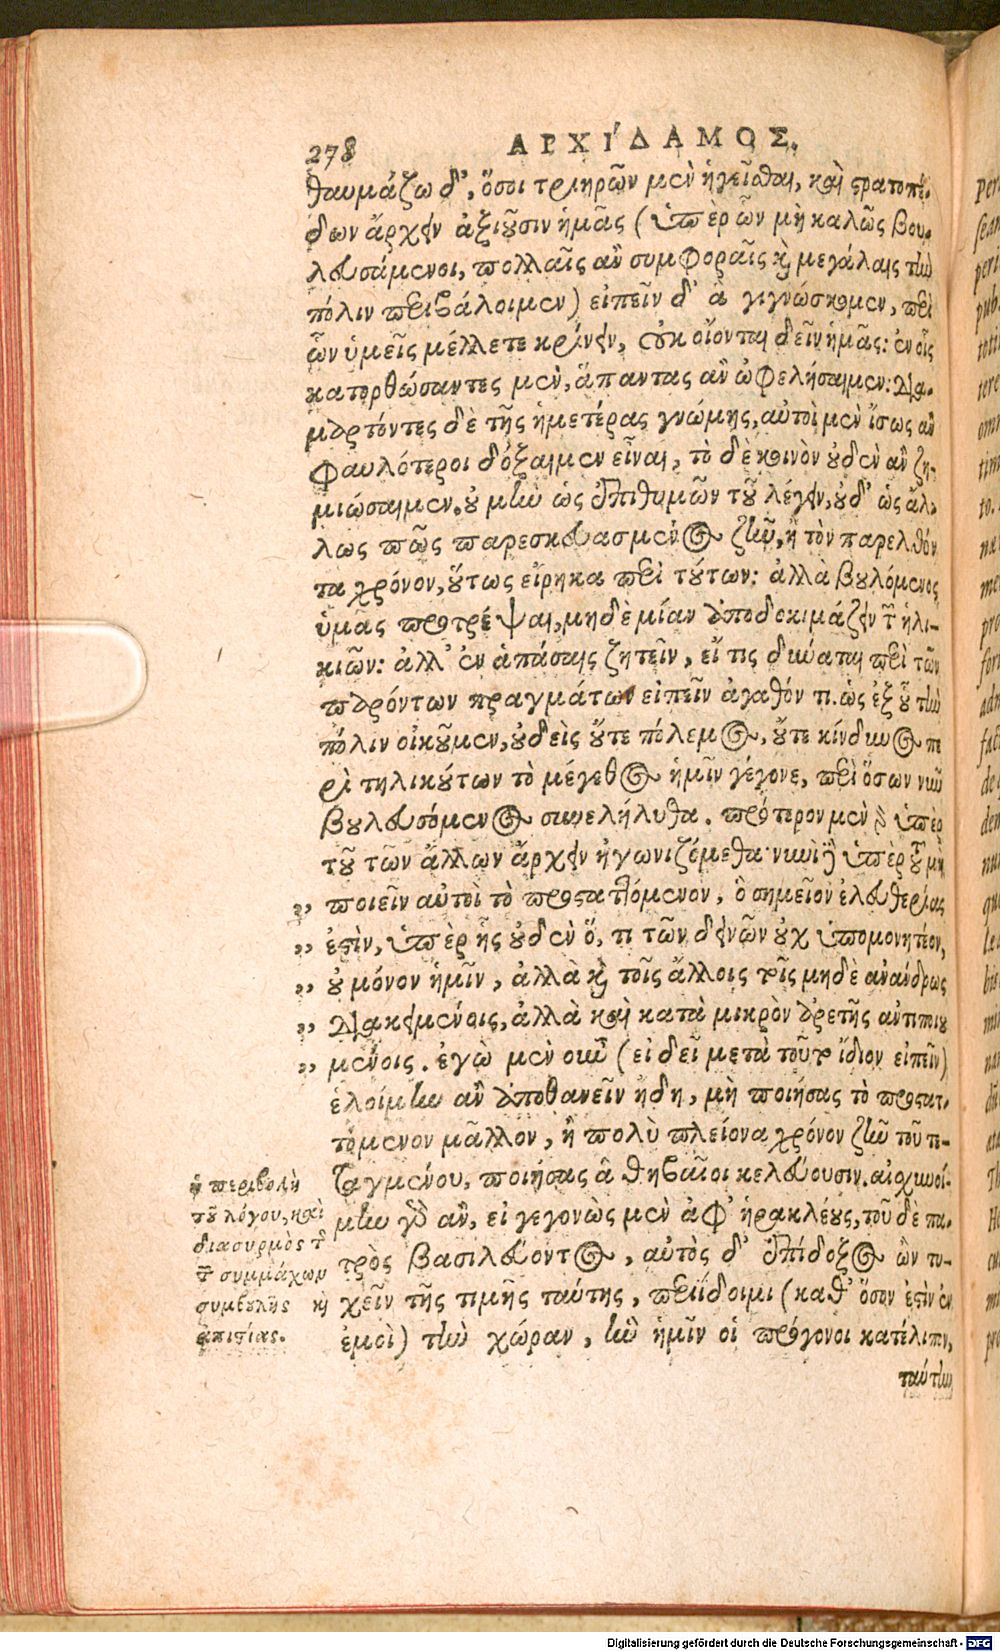 278
ΑΡΧΙ´ΔΑΜΟΣ.
θαυμάζω δ', ὅσοι τριηρῶν μὲν ἡγεῖσθαι, καὶ στρατοπέ-
δων ἄρχειν ἀξιοῦσιν ἡμᾶς (ὑπὲρ ὧν μὴ καλῶς βου-
λευσάμενοι, πολλαῖς ἂν συμφοραῖς καὶ μεγάλαις τὴν
πόλιν περιβάλοιμεν) εἰπεῖν δ' ἃ γιγνώσκομεν, περὶ
ὧν ὑμεῖς μέλλετε κρίνειν, οὐκ οἴονται δεῖν ἡμᾶς: ἐν οἷς
κατορθώσαντες μὲν, ἅπαντας ἂν ὠφελήσαιμεν: δια-
μαρτόντες δὲ τῆς ἡμετέρας γνώμης, αὐτοὶ μὲν ἴσως ἂν
φαυλότεροι δόξαιμεν εἶναι, τὸ δὲ κοινὸν οὐδὲν ἂν ζη-
μιώσαιμεν. οὐ μὴν ὡς ἐπιθυμῶν τοῦ λέγειν, οὐδ' ὡς ἄλ-
λως πῶς παρεσκευασμένος ζῆν, ἢ τὸν παρελθόν
τα χρόνον, οὕτως εἴρηκα περὶ τούτων: ἀλλὰ βουλόμενος
ὑμᾶς προτρέψαι, μηδὲ μίαν ἀποδοκιμάζειν τῶν ἡλι-
κιῶν: ἀλλ' ἐν ἁπάσαις ζητεῖν, εἴ τις δύναται περὶ τῶν
παρόντων πραγμάτων εἰπεῖν ἀγαθόν τι. ὡς ἐξ οὗ τὴν
πόλιν οἰκοῦμεν, οὐδεὶς οὔτε πόλεμος, οὔτε κίνδυνος πε
ρὶ τηλικούτων τὸ μέγεθος ἡμῖν γέγονε, περὶ ὅσων νῦν
βουλευσόμενος συνελήλυθα. πρότερον μὲν γὰρ ὑπὲρ
τοῦ τῶν ἄλλων ἄρχειν ἠγωνιζόμεθα· νυνὶ δὲ ὑπὲρ τοῦ μὴ
„ ποιεῖν αὐτοὶ τὸ προσταττόμενον, ὃ σημεῖον ἐλευθερίας
„ ἐστὶν, ὑπὲρ ἧς οὐδὲν ὅ, τι τῶν δεινῶν οὐχ ὑπομονητέον,
„ οὐ μόνον ἡμῖν, ἀλλὰ καὶ τοῖς ἄλλοις τοῖς μηδὲ ἀνάνδρως
„ διακειμένοις, ἀλλὰ καὶ κατὰ μικρὸν ἀρετῆς ἀντιποιου
„ μένοις. ἐγὼ μὲν οὖν (εἰ δεῖ μετὰ τοῦτο ἴδιον εἰπεῖν)
ἑλοίμην ἂν ἀποθανεῖν ἤδη, μὴ ποιήσας τὸ προστατ-
τόμενον μᾶλλον, ἢ πολὺ πλείονα χρόνον ζῆν τοῦ τε-
ταγμένου, ποιήσας ἃ θηβαῖοι κελεύουσιν. αἰσχυνοί-
μην γὰρ ἂν, εἰ γεγονὼς μὲν ἀφ' ἡρακλέους, τοῦ δὲ πα-
τρὸς βασιλεύοντος, αὐτὸς δ' ἐπίδοξος ὢν τυ-
χεῖν τῆς τιμῆς ταύτης, περιίδοιμι (καθ' ὅσον ἐστὶν ἐν
ἐμοὶ) τὴν χώραν, ἣν ἡμῖν οἱ πρόγονοι κατέλιπον,
ταύτην
ἡ περιβολὴ
τοῦ λόγου, καὶ
διασυρμὸς τῆς
τῶν συμμάχων
συμβουλῆς καὶ
ἀπιστίας.
Digitalisierung gefördert durch die Deutsche Forschungsgemeinschaft - DFG